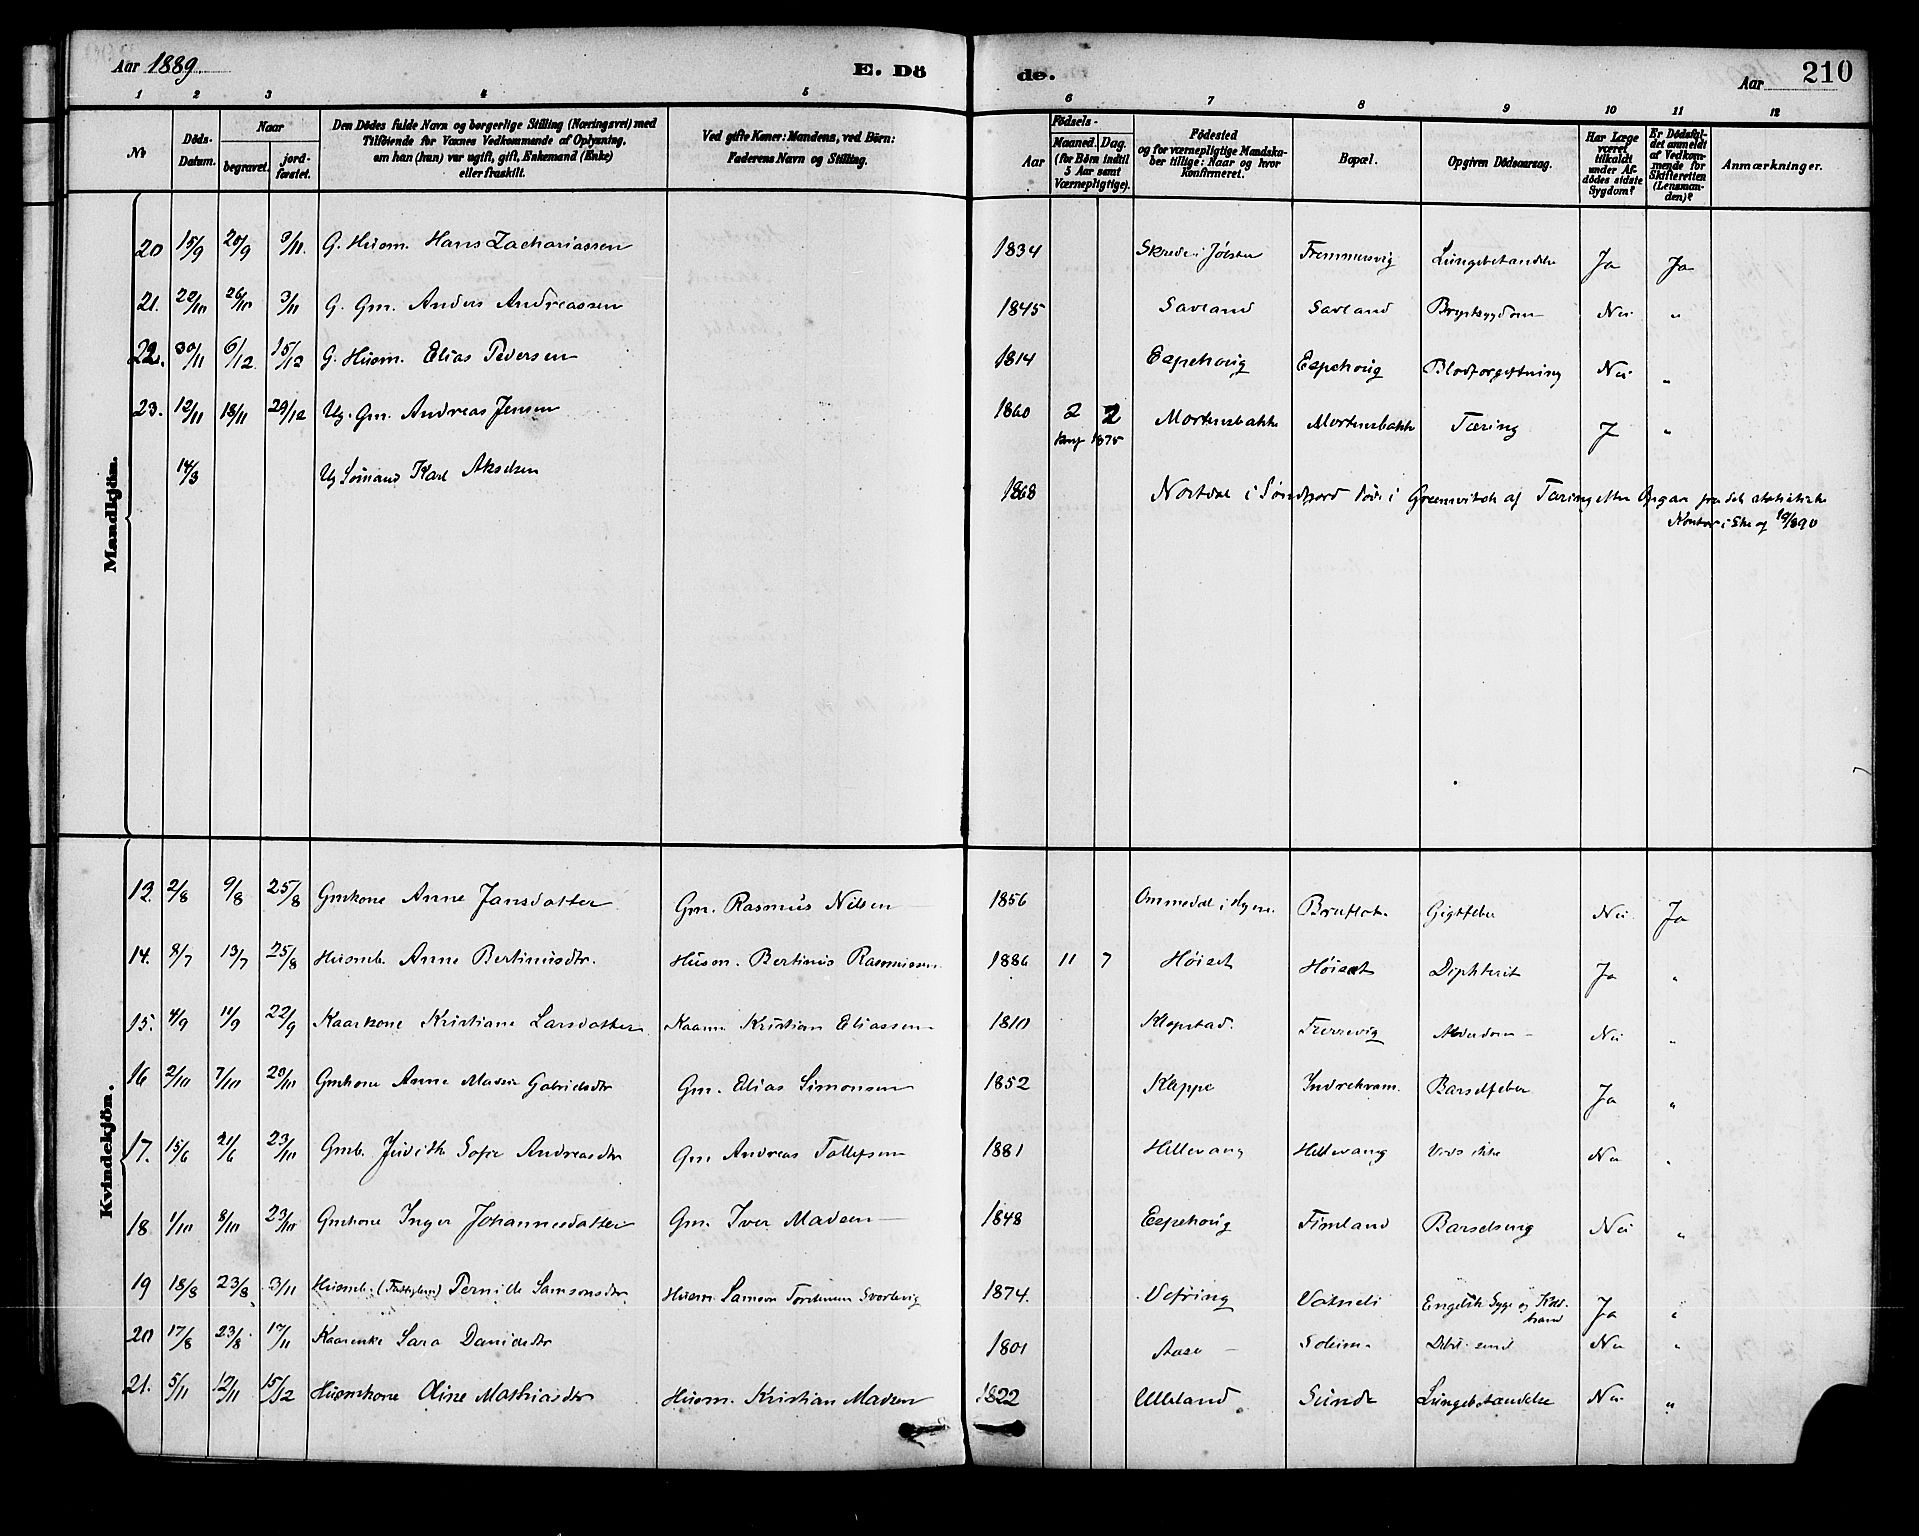 Aar 1889. E. Dö de. Aar 210
1 2 3 4 5 6 7 8 9 10 11 12
No
Döds-Datum.
Naar begravet. jordfæstet.
Den Dödes fulde Navn og borgerlige Stilling (Næringsvei) med Tilföiende for Voxnes Vedkommende af Oplysning, om han (hun) var ugift, gift, Enkemand (Enke) eller fraskilt.
Ved gifte Koner: Mandens, ved Börn: Faderens Navn og Stilling.
Födsels- Aar Maaned. Dag. (for Börn indtil 5 Aar samt Værnepligtige).
Födested og for værnepligtige Mandskaber tillige: Naar og hvor konfirmeret.
Bopæl.
Opgiven Dödsaarsag.
Har Læge været tilkaldt under Afdödes sidste Sygdom?
Er Dödsfaldet anmeldt af Vedkommende for Skifteretten (Lensmanden)?
Anmærkninger.
Mandkjön.
20 15/9 20/9 3/11. G. Husm. Hans Zachariassen 1834 Skrede i Jølster Lungebetændelse Ja Ja
21. 22/10 26/10 3/11 G. Gm. Anders Andreassen 1845 Savland Savland Brystsygdom Nei "
22. 30/11 6/12 15/12 G. Husm. Elias Pedersen 1814 Espehoug Espehoug Blodforgiftning Nei "
23. 12/11 18/11 29/12 Ug. Gm. Andreas Jensen 1860 2 2 Mortensbakke Mortensbakke Tæring J "
konf 1875
14/3 Ug Sømand Karl Akselsen 1868 Nordal i Søndfjord død i Greenwitch af Tæring efter Opgav fra det statistiske
Kontor i 19/890
Kvindekjön.
13. 2/8 9/8 25/8 Gmkone Anne Jansdatter Gm. Rasmus Nilsen 1856 Ommedal i Hyen Bruflot. Gigtfeber Nei Ja
14. 8/7 13/7 25/8 Husmb. Anne Bertinusdtr. Husm. Bertinus Rasmussen 1886 11 7 Høiset Høiset Diphterit Ja "
15. 4/9 11/9 22/9 Kaarkone Kristiane Larsdatter Kaarm Kristian Eliassen 1810 Klopstad. Alderdom Nei "
16 2/10 7/10 20/10 Gmkone Anne Madsine Gabrielsdtr Gm. Elias Simonsen 1852 Kleppe Indrekvam. Barselfeber Ja "
17. 15/6 21/6 23/10 Gmb. Judith Sofie Andreasdtr Gm Andreas Tollefsen 1881 Hellevang Hellevang Vides ikke Nei "
18 1/10 8/10 23/10 Gmkone Inger Johannesdatter Gm. Iver Madsen 1848 Espehoug Fimland Barselseng Nei "
19 18/8 23/8 3/11 Husmb. Pernide Samsonsdtr Husm Samson Torstensen Svortevig 1874. Vefring Engelsk Syge og Koldbrand Ja "
20 17/8 23/8 17/11 Kaarenke Sara Danielsdtr 1801 Aase Soleim Nei "
21. 5/11 12/11 15/12 Husmkone Oline Mathiasdtr Husm. Kristian Madsen 1822 Ulleland Sunde Lungebetændelse Nei "